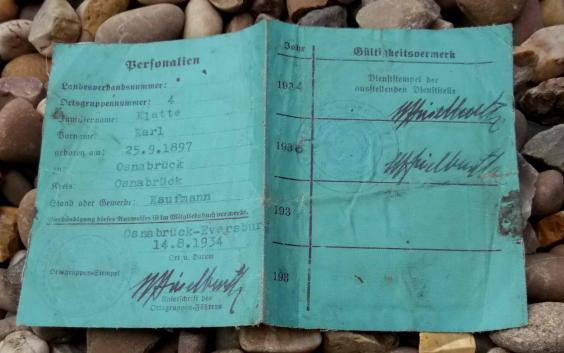 Personalien
Landesverbandsnummer:
Ortsgruppennummer: 4
Familienname: Klatte
Vorname: Karl
geboren am: 25.9.1897
in: Osnabrück
Kreis: Osnabrück
Stand oder Gewerbe: Kaufmann
Aushändigung dieses Ausweises ist im Mitgliedsbuch vermerkt.
Osnabrück-Eversbur
14.8.1934
Ort u. Datum
Ortsgruppen-Stempel
Unterschrift des
Ortsgruppen-Führers
Jahr
Gültigkeitsvermerk
Dienststempel der
ausstellenden Dienststelle
1934
193
193
193